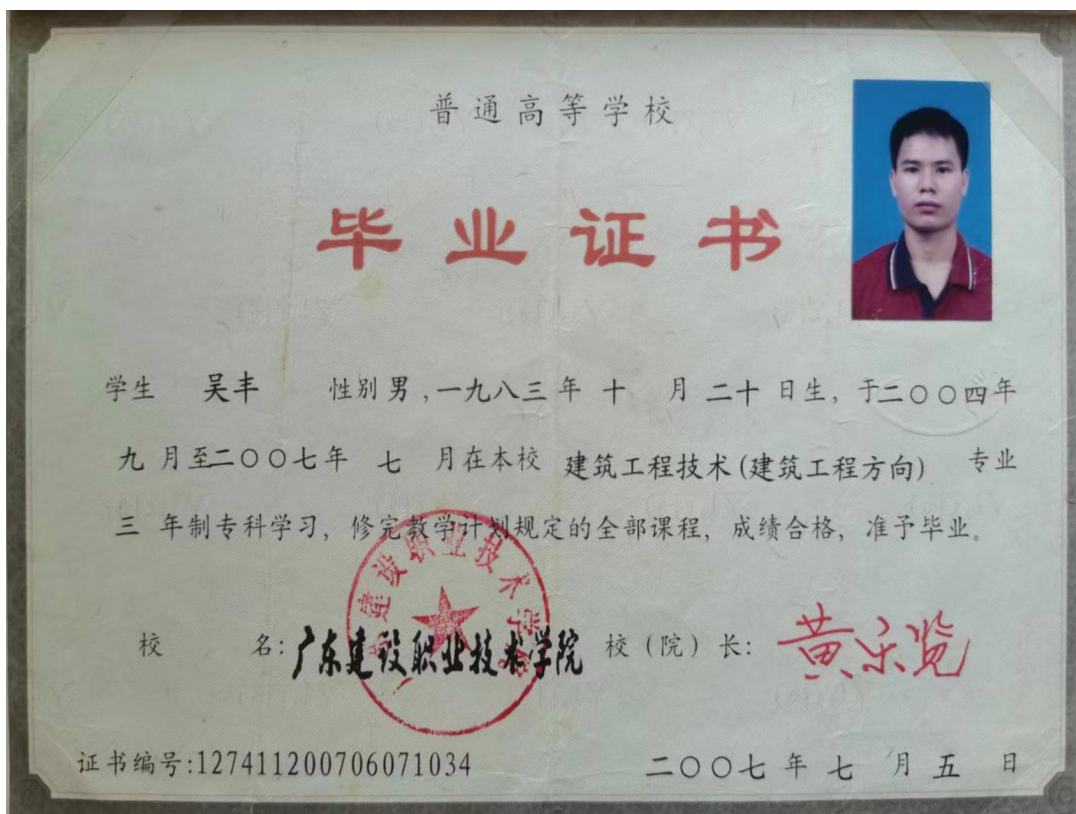 普通高等学校
毕业证书
学生 吴丰 性别 男 ,一九八三 年 十 月 二十 日生, 于二〇〇四年
九 月至二〇〇七年 七 月在本校 建筑工程技术(建筑工程方向) 专业
三 年制专科学习, 修完教学计划规定的全部课程, 成绩合格, 准予毕业。
建设职业技术学院
校 名: 广东建设职业技术学院 校 (院) 长: 黄乐览
证书编号:127411200706071034 二〇〇七 年 七 月 五 日